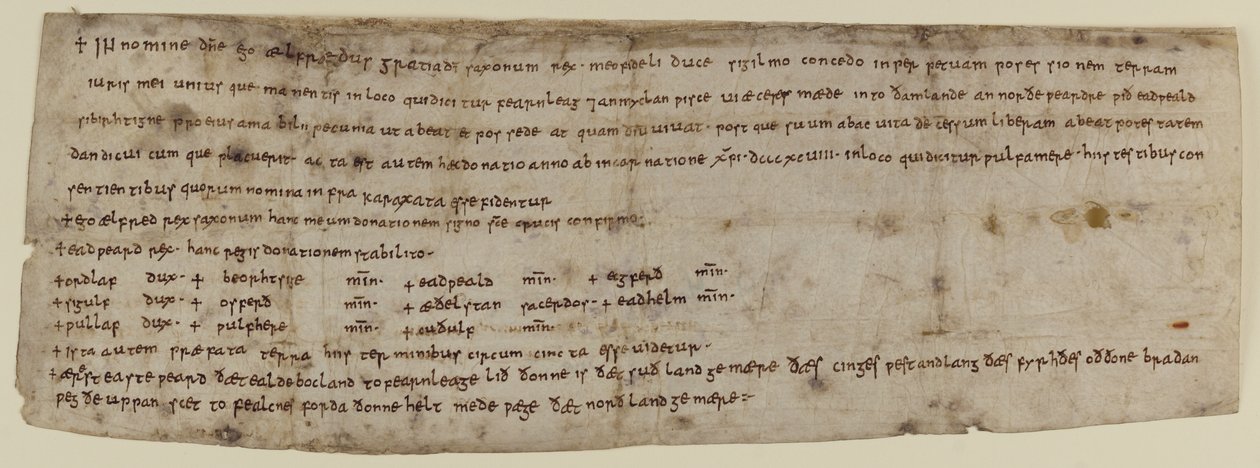 + IN nomine dn̄e ego ælfredus gratia dī saxonum rex · meo fideli duce sigilmo concedo in perpetuam possessionem terram
iuris mei unius que manentis in loco qui dicitur fearnleag ⁊ an mychan ƿisce viæceres mæde in to ðamlande an norðeƿeardre ƿið eadƿeald
sibirhtigne pro eius amabilii pecunia ut abeat et possedeat quamdiu vivat · post que suum abac vita decessum liberam abeat potestatem
dandi cuicumque placuerit · acta est autem hæc donatio anno ab incarnatione xp̄i · dcccxcviii · in loco qui dicitur ƿulfamere · hiis testibus con
sentientibus quorum nomina infra karaxata esse fidentur
+ ego ælfred rex saxonum hanc meum donationem signo sc̄e crucis confirmo ·
+ eadƿeard rex · hanc regis donationem stabilito ·
+ ordlaf dux · + beorhtsige m̄in · + eadƿeald m̄in · + ecgferð m̄in ·
+ sigulf dux · + osferð m̄in · + æðelstan sacerdos · + eadhelm m̄in ·
+ ƿullaf dux · + ƿulfhere m̄in · + cuðulf m̄in ·
+ ista autem præfata terra hiis terminibus circumcincta esse videtur ·
+ ærest easteƿeard ðæt ealde bocland to fearnleage lið ðonne is ðæt suð landgemære ðæs cinges ƿestandlang ðæs fyrhðes oð ðone bradan
ƿeg ðe uppan scet to fealcnes forda ðonne helt mede ƿæge ðæt norð landgemære :-